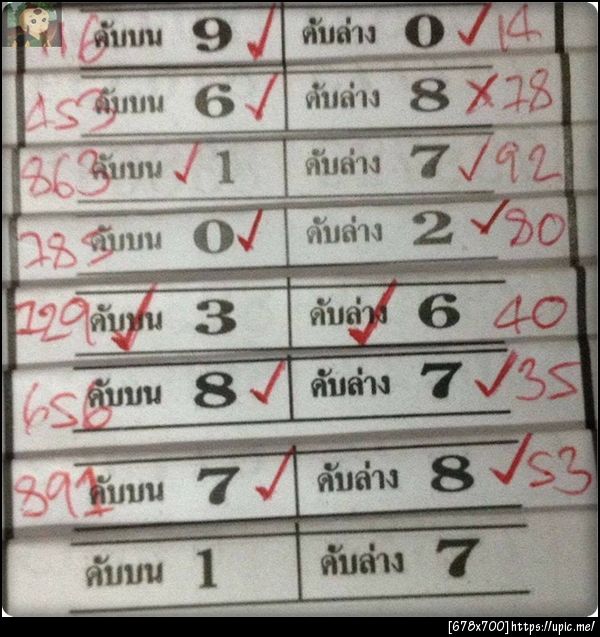 116 ดับบน 9 ✓ ดับล่าง 0 ✓ 14
453 ดับบน 6 ✓ ดับล่าง 8 ✗ 78
863 ดับบน ✓ 1 ดับล่าง 7 ✓ 92
785 ดับบน 0 ✓ ดับล่าง 2 ✓ 80
129 ดับบน ✓ 3 ดับล่าง ✓ 6 40
656 ดับบน 8 ✓ ดับล่าง 7 ✓ 35
891 ดับบน 7 ✓ ดับล่าง 8 ✓ 53
ดับบน 1 ดับล่าง 7
[678x700]https://upic.me/